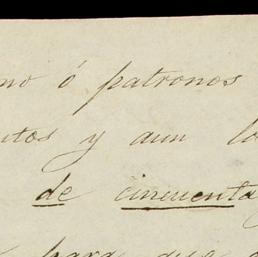 no ó patronos
ntos y aun lo
de cincuenta
para que